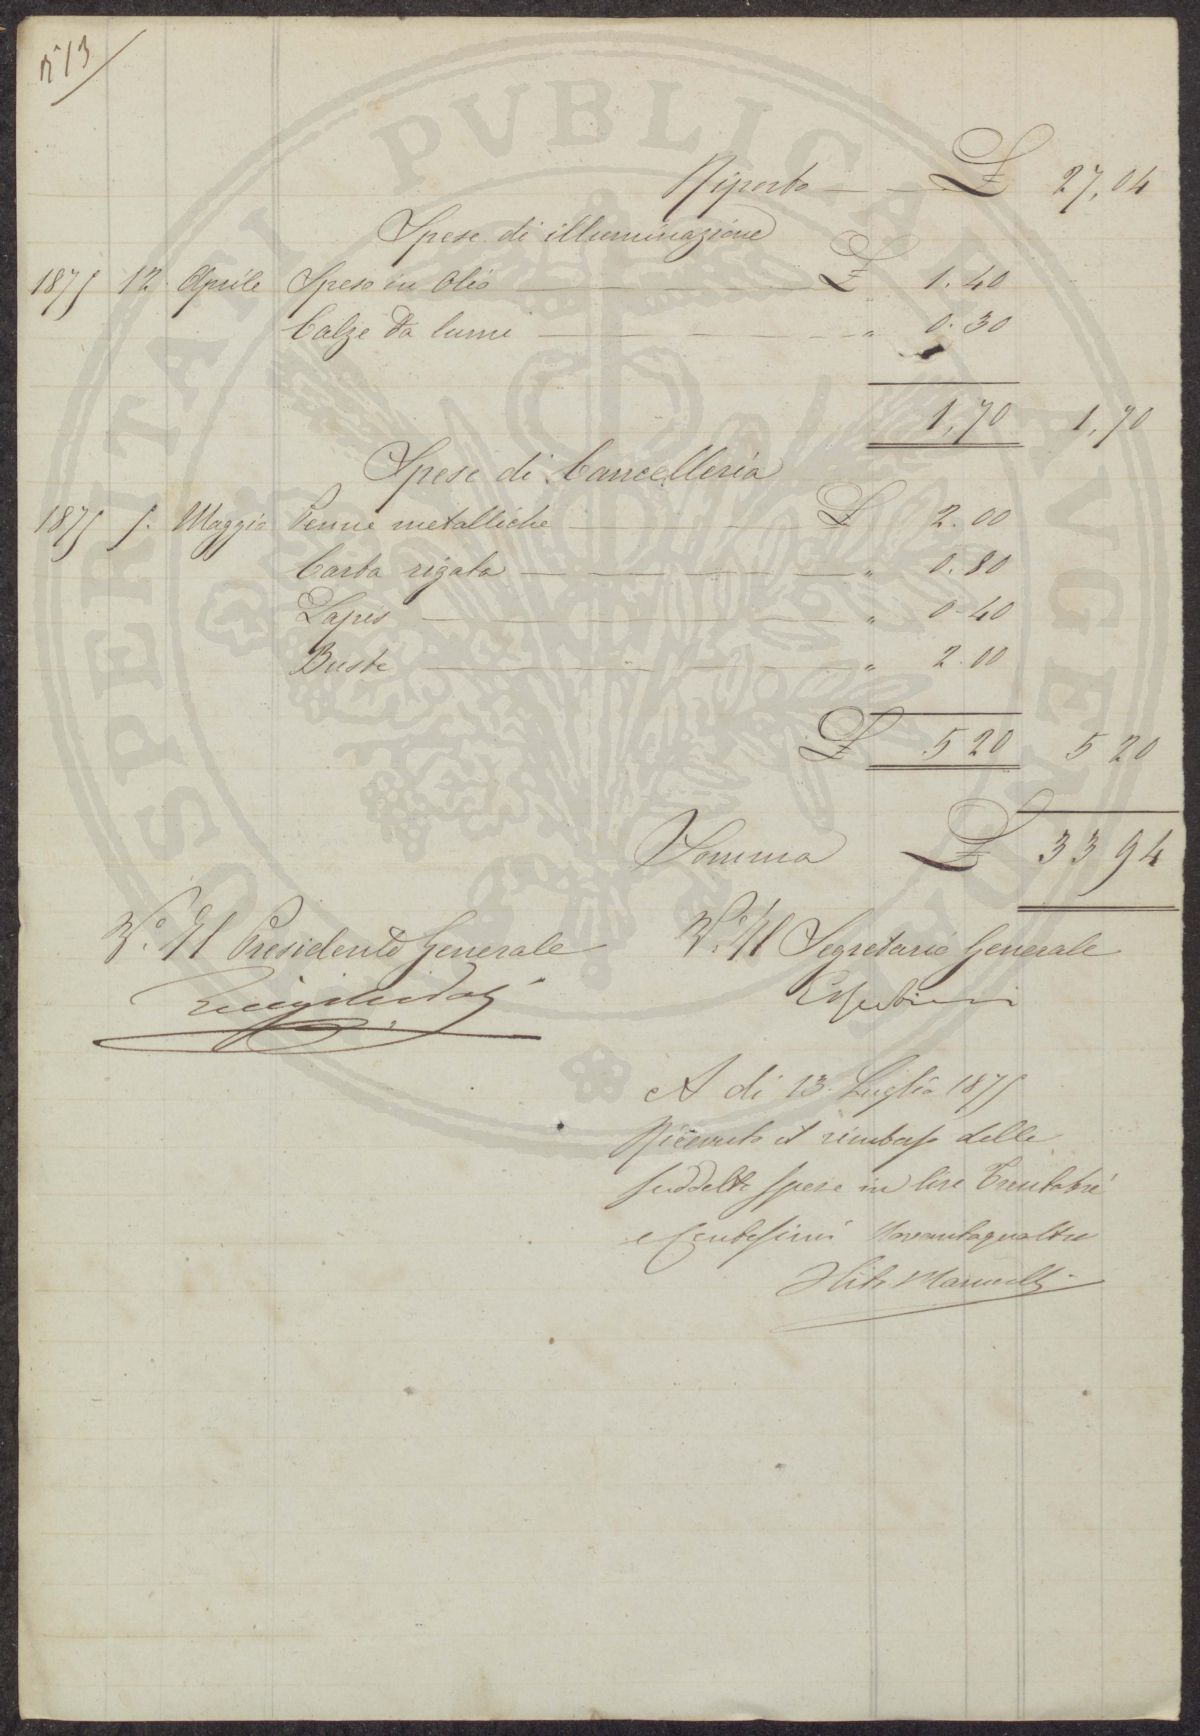 n° 13
Riporto £ 27,04
Spese di illuminazione
1875 12 Aprile Spese in Olio £ 1.40
Calze da lumi " 0.30
1,70 1,70
Spese di Cancelleria
1875 5. Maggio Penne metalliche £ 2.00
Carta rigata " 0.80
Lapis " 0.40
Buste " 2.00
£ 520 520
Somma £ 3394
V.° Il Presidente Generale
V.° Il Segretario Generale
A di 13. Luglio 1875
Ricevuto il rimborso delle
suddette spese in lire Trentatré
e Centesimi Novantaquattro
PROSPERITATI PVBLICAE AVGENDAE